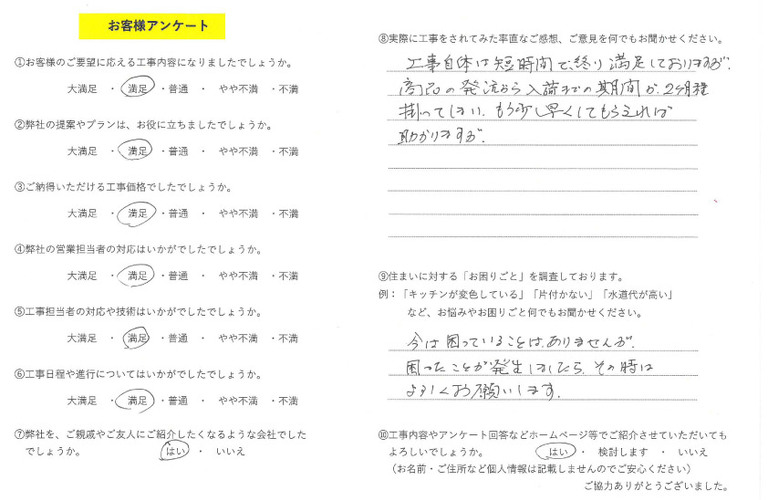 お客様アンケート
①お客様のご要望に応える工事内容になりましたでしょうか。
大満足 ・ 満足 ・普通 ・ やや不満 ・不満
②弊社の提案やプランは、お役に立ちましたでしょうか。
大満足 ・ 満足 ・普通 ・ やや不満 ・不満
③ご納得いただける工事価格でしたでしょうか。
大満足 ・ 満足 ・普通 ・ やや不満 ・不満
④弊社の営業担当者の対応はいかがでしたでしょうか。
大満足 ・ 満足 ・普通 ・ やや不満 ・不満
⑤工事担当者の対応や技術はいかがでしたでしょうか。
大満足 ・ 満足 ・普通 ・ やや不満 ・不満
⑥工事日程や進行についてはいかがでしたでしょうか。
大満足 ・ 満足 ・普通 ・ やや不満 ・不満
⑦弊社を、ご親戚やご友人にご紹介したくなるような会社でした
でしょうか。 はい ・ いいえ
⑧実際に工事をされてみた率直なご感想、ご意見を何でもお聞かせください。
工事自体は短時間で終り満足しておりますが、
商品の発注から入荷までの期間が、2ヶ月程
掛ってしまい、もう少し早くしてもらえれば
助かりますが、
⑨住まいに対する「お困りごと」を調査しております。
例：「キッチンが変色している」「片付かない」「水道代が高い」
など、お悩みやお困りごと何でもお聞かせください。
今は困っていることは、ありませんが、
困ったことが発生しましたら、その時は
よろしくお願いします。
⑩工事内容やアンケート回答などホームページ等でご紹介させていただいても
よろしいでしょうか。 はい ・ 検討します ・ いいえ
（お名前・ご住所など個人情報は記載しませんのでご安心ください）
ご協力ありがとうございました。